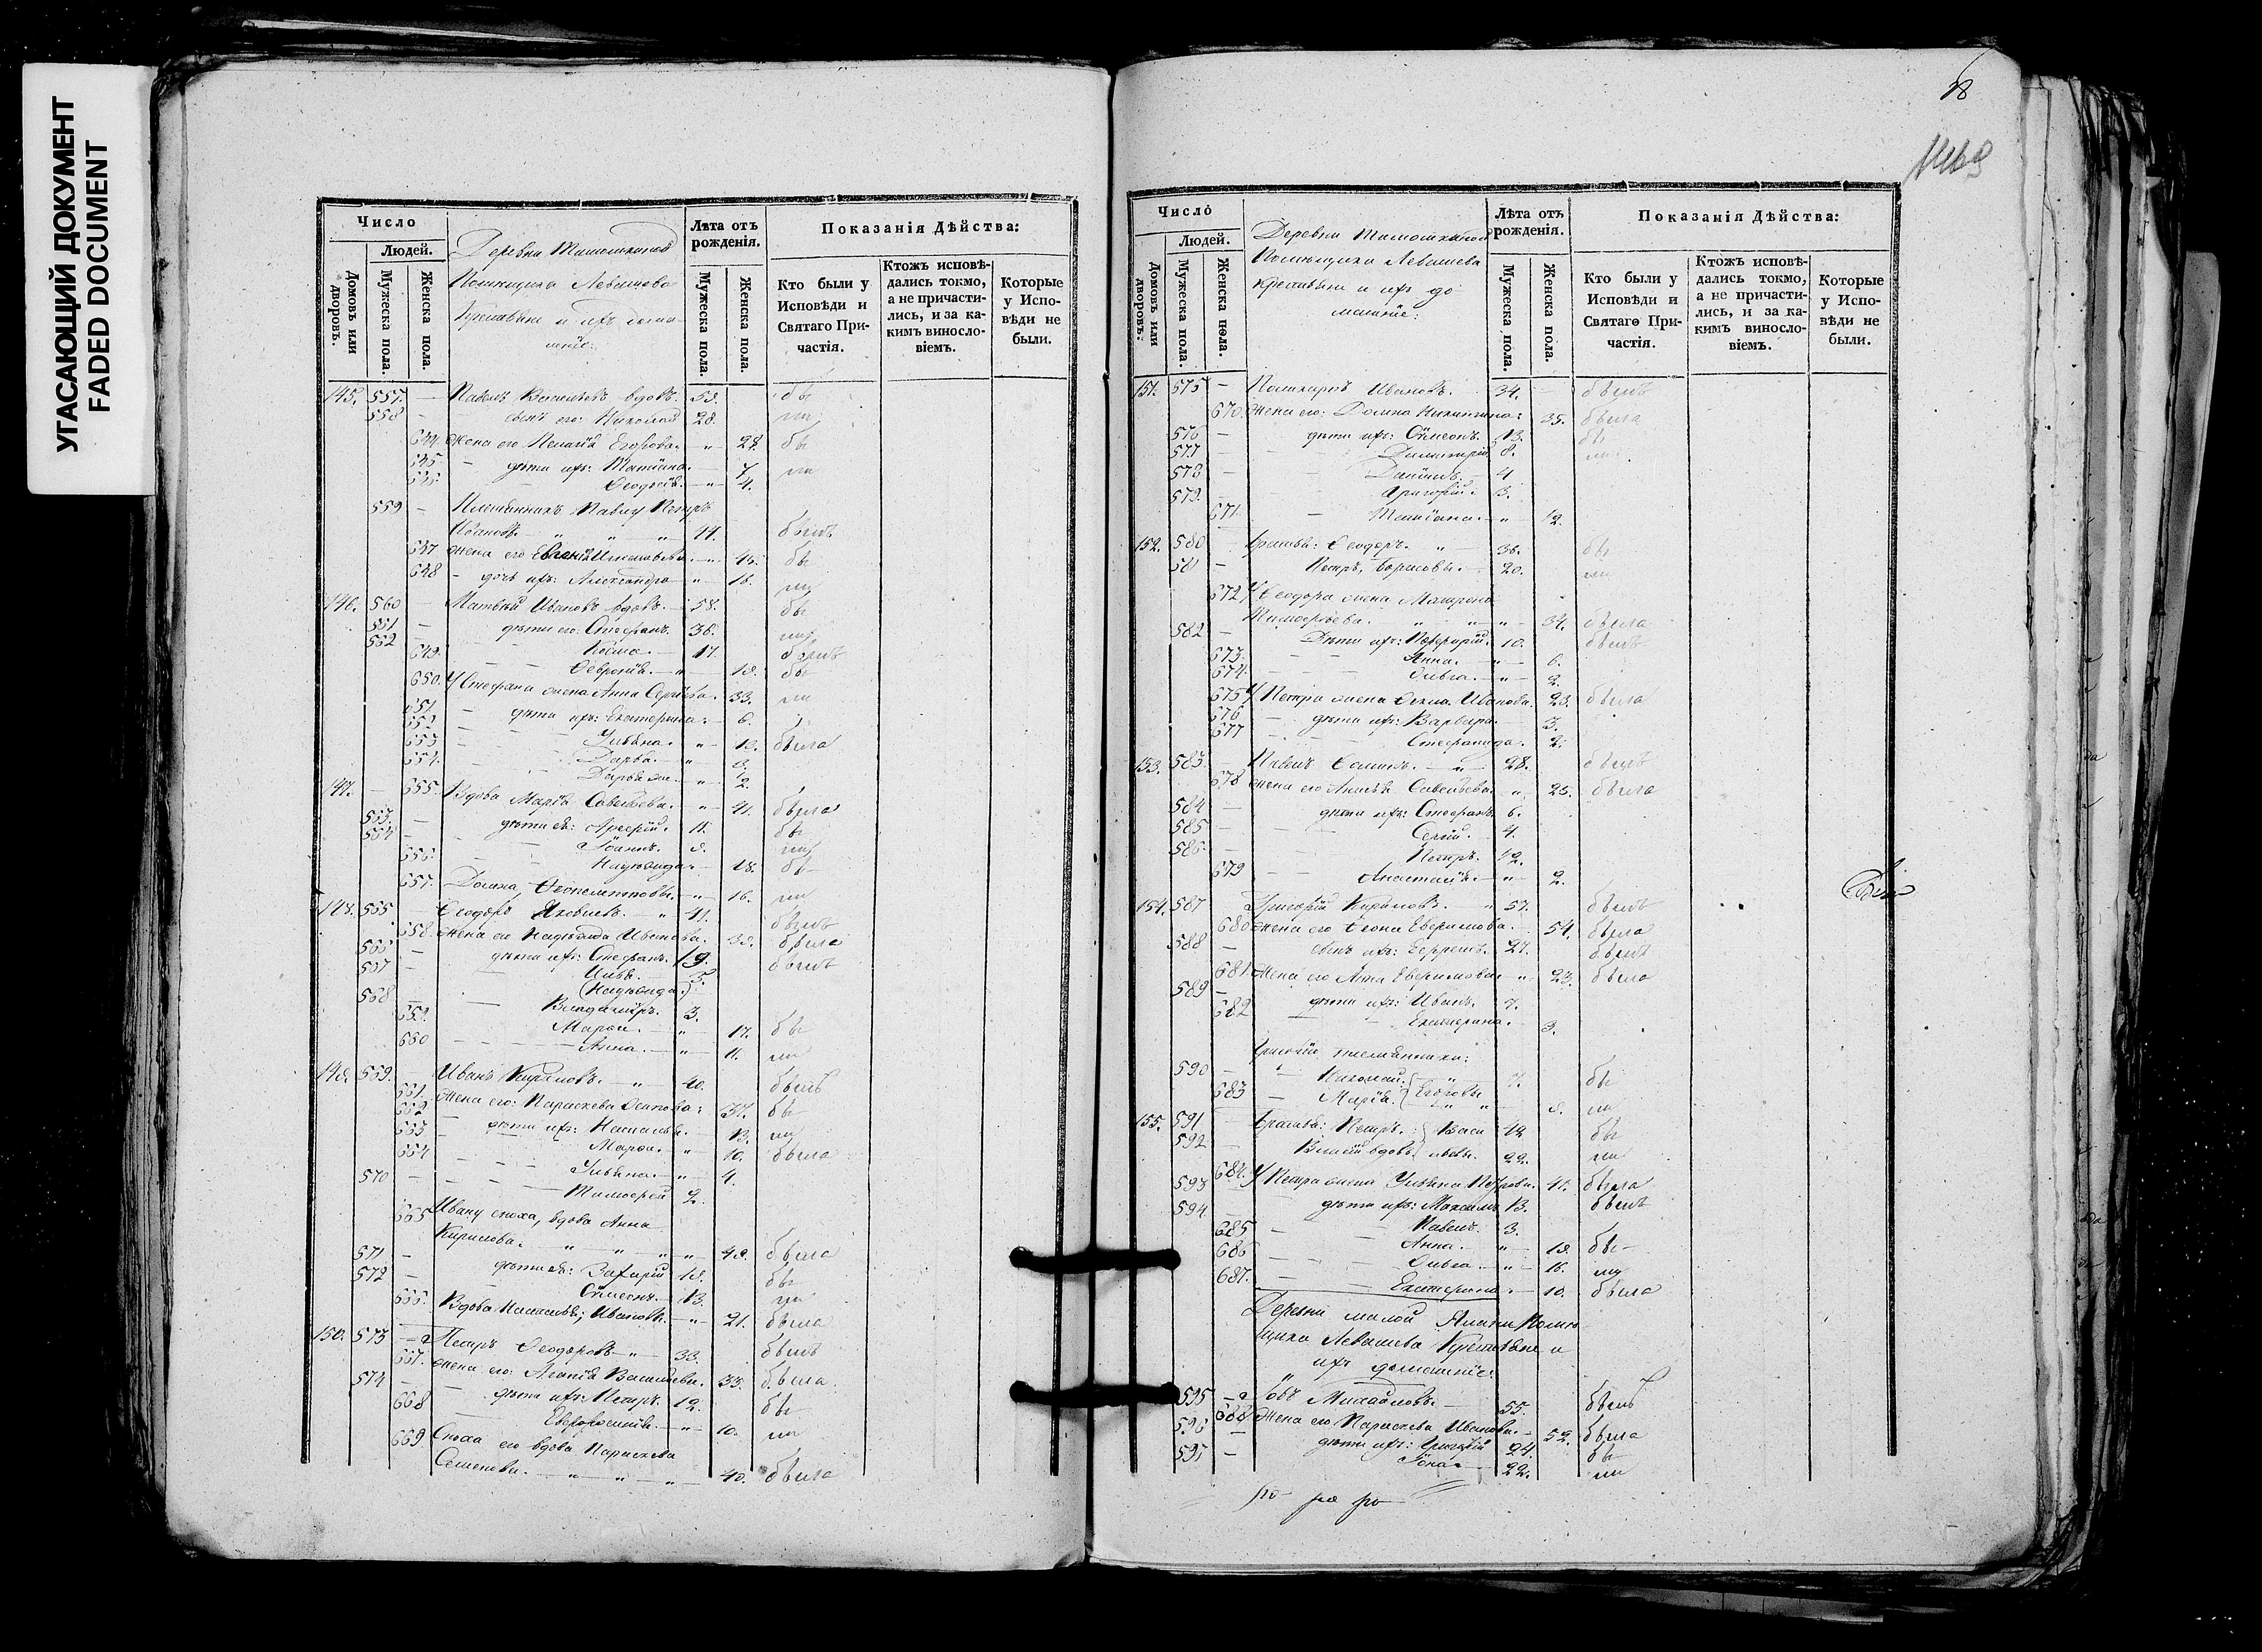 УГАСАЮЩИЙ ДОКУМЕНТ
FADED DOCUMENT
Число
Людей.
Домовъ или дворовъ.
Мужеска пола.
Женска пола.
Деревни
Помѣщика Левашова
Крестьяне и ихъ дома-
шніе:
Лѣта отъ рожденія.
Мужеска пола.
Женска пола.
Показанія Дѣйства:
Кто были у Исповѣди и Святаго Причастія.
Ктожъ исповѣдались токмо, а не причастились, и за какимъ винословіемъ.
Которые у Исповѣди не были.
145. 557. — Павелъ Васильевъ вдовъ. 53. бы
558 — сынъ его: Николай 28. ли
644. Жена его Пелагія Егорова. 28. бы
645 — дѣти ихъ: Татіана. 7. ли
646 Ѳеодосія. 4.
559 — Племянникъ Павлу Петръ
Ивановъ 44. былъ
647 Жена его 45. бы
648 — дочь ихъ: Александра 16. ли
146. 560 — Матвѣй Ивановъ вдовъ. 58. бы
561 — дѣти его: Стефанъ. 36. ли
562 Косма. 17. былъ
649. Ѳевронія. 18. бы
650. У Стефана жена Анна Сергѣева. 33. ли
651 — дѣти ихъ: Екатерина. 6.
652 Ульяна. 13. была
653 Дарья. 8.
654. Дарья же. 1/2.
147. — 655. Вдова Марія Савельева. 41. была
563. — дѣти ея: 11. бы
564 Іоаннъ. 8. ли
656. Надежда. 18. бы
657. Домна, 16. ли
148. 565 Ѳеодоръ Яковлевъ. 41. былъ
658. Жена его Надежда Иванова. 38. была
566 — дѣти ихъ: Стефанъ. 19. былъ
567 — Илья. 5.
(Надежда.)
568 — Владиміръ. 3.
659. Марѳа. 17. бы
660 Анна. 11. ли
149. 569. — Иванъ Кириловъ. 40. былъ
661. Жена его: Параскева Осипова: 37. бы
662 — дѣти ихъ: Наталья. 13. ли
663 Марѳа. 10. была
664 Ульяна. 4.
570 — Тимоѳей 2.
665 Ивану сноха, вдова Анна
Кирилова. 48. была
571 — дѣти ея: Захарій 18. бы
572 — Сѵмеонъ. 13. ли
666. Вдова Наталья Иванова. 21. была
150. 573 — Петръ Ѳеодоровъ 33. былъ
667. Жена его: Агапія Васильева. 33. была
574 — дѣти ихъ: Петръ. 12. бы
668 Евфросинія. 10. ли
669 Сноха его вдова Параскева
Семенова. 40. была
58
Число
Людей.
Домовъ или дворовъ.
Мужеска пола.
Женска пола.
Деревни
Помѣщика Левашева
Крестьяне и ихъ до
машніе:
Лѣта отъ рожденія.
Мужеска пола.
Женска пола.
Показанія Дѣйства:
Кто были у Исповѣди и Святаго Причастія.
Ктожъ исповѣдались токмо, а не причастились, и за какимъ винословіемъ.
Которые у Исповѣди не были.
151. 575 — Ивановъ. 34. былъ
670. Жена его: Домна Никитина: 35. была
576 — дѣти ихъ: Сѵмеонъ. 13. бы
577 Димитрій 8. ли
578 — Даніилъ. 4
579. Григорій. 3.
671. — Татіана. 1/2.
152. 580 — Братья: Ѳеодоръ. 36. бы
581 — Петръ, Борисовы. 20. ли
672 У Ѳеодора жена Матрена
Тимоѳеева. 34. была
582 — Дѣти ихъ: Порфирій. 10. былъ
673. Анна. 6.
674. Ольга. 2.
675 У Петра жена Ѳекла Иванова. 23. была
676 — дѣти ихъ: Варвара. 3.
677 Стефанида. 2.
153. 583. — Павелъ 28. былъ
678 Жена его Анисья Савельева. 25. была
584 — дѣти ихъ: Стефанъ. 6.
585 Сергій. 4.
586 Петръ. 1/2.
679 Анастасія. 2.
154. 587 Григорій Кириловъ. 57. былъ
680 Жена его 54. была
588 — сынъ ихъ: Ефремъ. 27. былъ
681. Жена его Анна 23. была
589 — дѣти ихъ: Иванъ. 7.
682 Екатерина. 3.
племянники:
590 — Николай. 7. бы
683 — Марія. Егоровы 8. ли
155. 591 — Братья: Петръ. Васи 42 бы
592 — вдовъ. льевы. 22. ли
684. У Петра жена Ульяна Петрова. 41. была
593 — дѣти ихъ: Максимъ 13. былъ
594 Павелъ. 3.
685 — Анна. 18. бы
686 Ольга. 16. ли
687. Екатерина. 10. была
Деревни малой Помѣ
щика Левашева Крестьяне и
ихъ домашніе:
595 — Іовъ Михайловъ. 55. былъ
688 Жена его Параскева Иванова. 52. была
596 — дѣти ихъ: Григорій 24. бы
597 — Іона. 22. ли